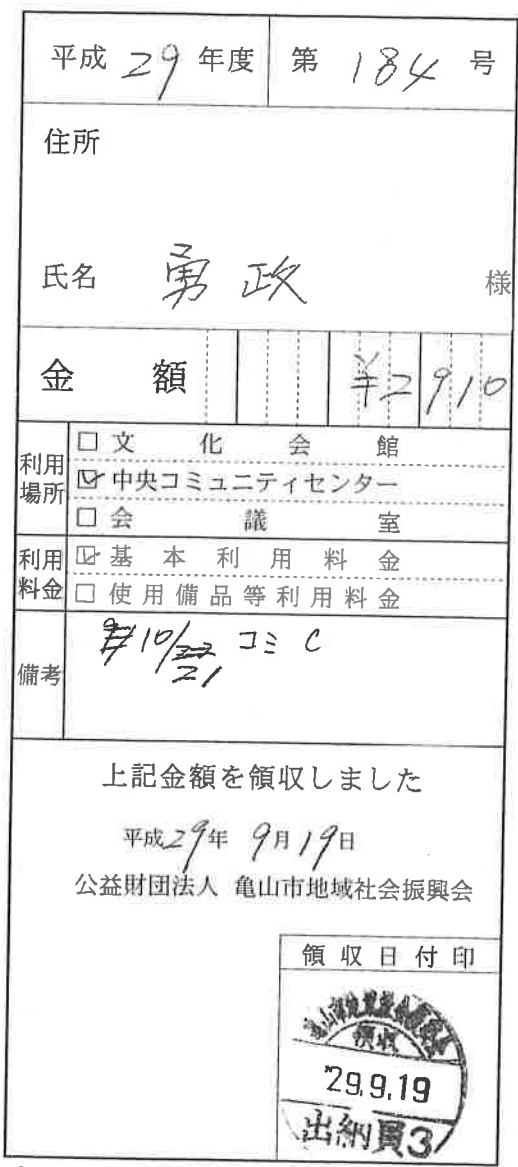 平成 29 年度 第 184 号
住所
氏名 勇政 様
金額 ¥2910
利用場所
□ 文化会館
☑ 中央コミュニティセンター
□ 会議室
利用料金
☑ 基本利用料金
□ 使用備品等利用料金
備考
10/21 コミC
上記金額を領収しました
平成29年 9月19日
公益財団法人 亀山市地域社会振興会
領収日付印
亀山市地域社会振興会
領収
'29.9.19
出納員3